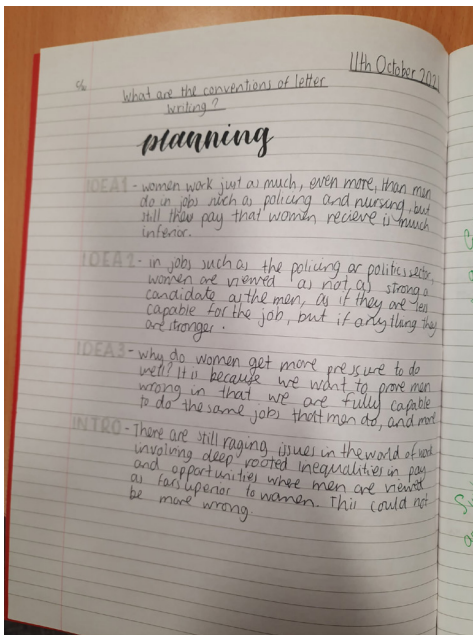 11th October 2021
What are the conventions of letter
writing?
planning
IDEA1 - women work just as much, even more, than men
do in jobs such as policing and nursing, but
still they pay that women recieve is much
inferior.
IDEA2 - in jobs such as the policing or politics sector,
women are viewed as not as strong a
candidate as the men, as if they are less
capable for the job, but if anything they
are stronger.
IDEA3 - why do women get more pressure to do
well? It is because we want to prove men
wrong in that we are fully capable
to do the same jobs that men do, and more
INTRO - There are still raging issues in the world of work
involving deep rooted inequalities in pay
and opportunities where men are viewed
as far superior to women. This could not
be more wrong.